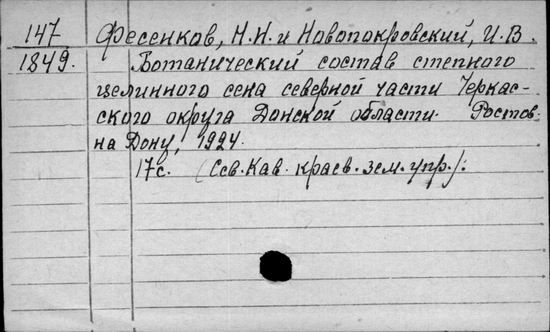 147 Фесенков, Н.Н. и Новопокровский, И.В.
1849. Ботанический состав степного
целинного сена северной части Черкас-
ского округа Донской области. Ростов-
на Дону, 1924.
17с. (Сев.Кав. краев. зем. упр.).